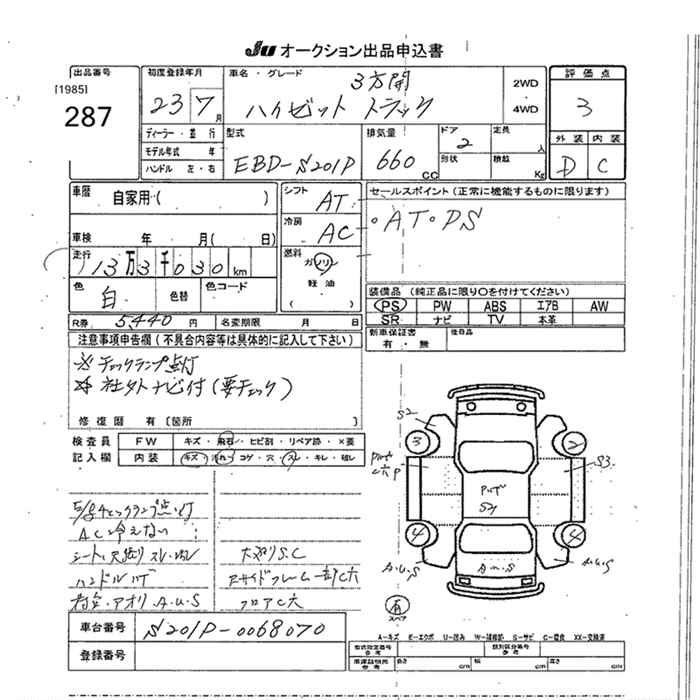 JU オークション出品申込書
出品番号 初度登録年月 車名・グレード 評価点
[1985]
287
23 7月
3方開
ハイゼット トラック
2WD
4WD
3
ディーラー・並行
モデル年式 年
ハンドル 左・右
型式
EBD-S201P
排気量
660 CC
ドア 2
形状
定員 人
積載 Kg
外装 内装
D C
車歴 自家用( )
シフト AT
セールスポイント(正常に機能するものに限ります)
・AT・PS
車検 年 月( 日)
冷房 AC
走行 13万3千030km
燃料 ガソリン
軽油
( )
色 白 色替 色コード
装備品(純正品に限り○を付けてください)
PS PW ABS エアB AW
SR ナビ TV 本革
R券 5,440円 名変期限 月 日
新車保証書 後日品
有・無
注意事項申告欄(不具合内容等は具体的に記入して下さい)
※ チェックランプ点灯
※ 社外ナビ付(要チェック)
修復歴 有〔箇所 〕
検査員 FW キズ・飛石・ヒビ割・リペア跡・×要
記入欄 内装 キズ・汚れ・コゲ・穴・スレ・キレ・破レ
S2
3
2
S3
4
4
A.U.S
A.U.S
A.U.S
有
スペア
チェックランプ点灯
AC冷えない
シート
スレ
ハンドルハゲ
アオリ A.U.S
S.C
サイドフレーム一部C穴
フロアC穴
車台番号 S201P-0068070
登録番号
A-キズ E-エクボ U-凹み W-補修跡 S-サビ C-腐食 XX-交換済
型式指定番号 類別区分番号
参考 参考
車庫証明用 長さ cm 幅 cm 高さ cm
参考